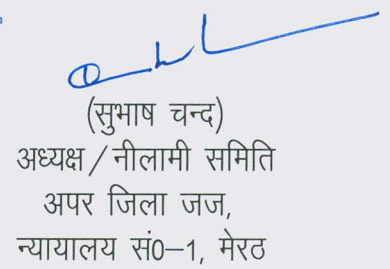 (सुभाष चन्द)
अध्यक्ष/नीलामी समिति
अपर जिला जज,
न्यायालय सं0–1, मेरठ